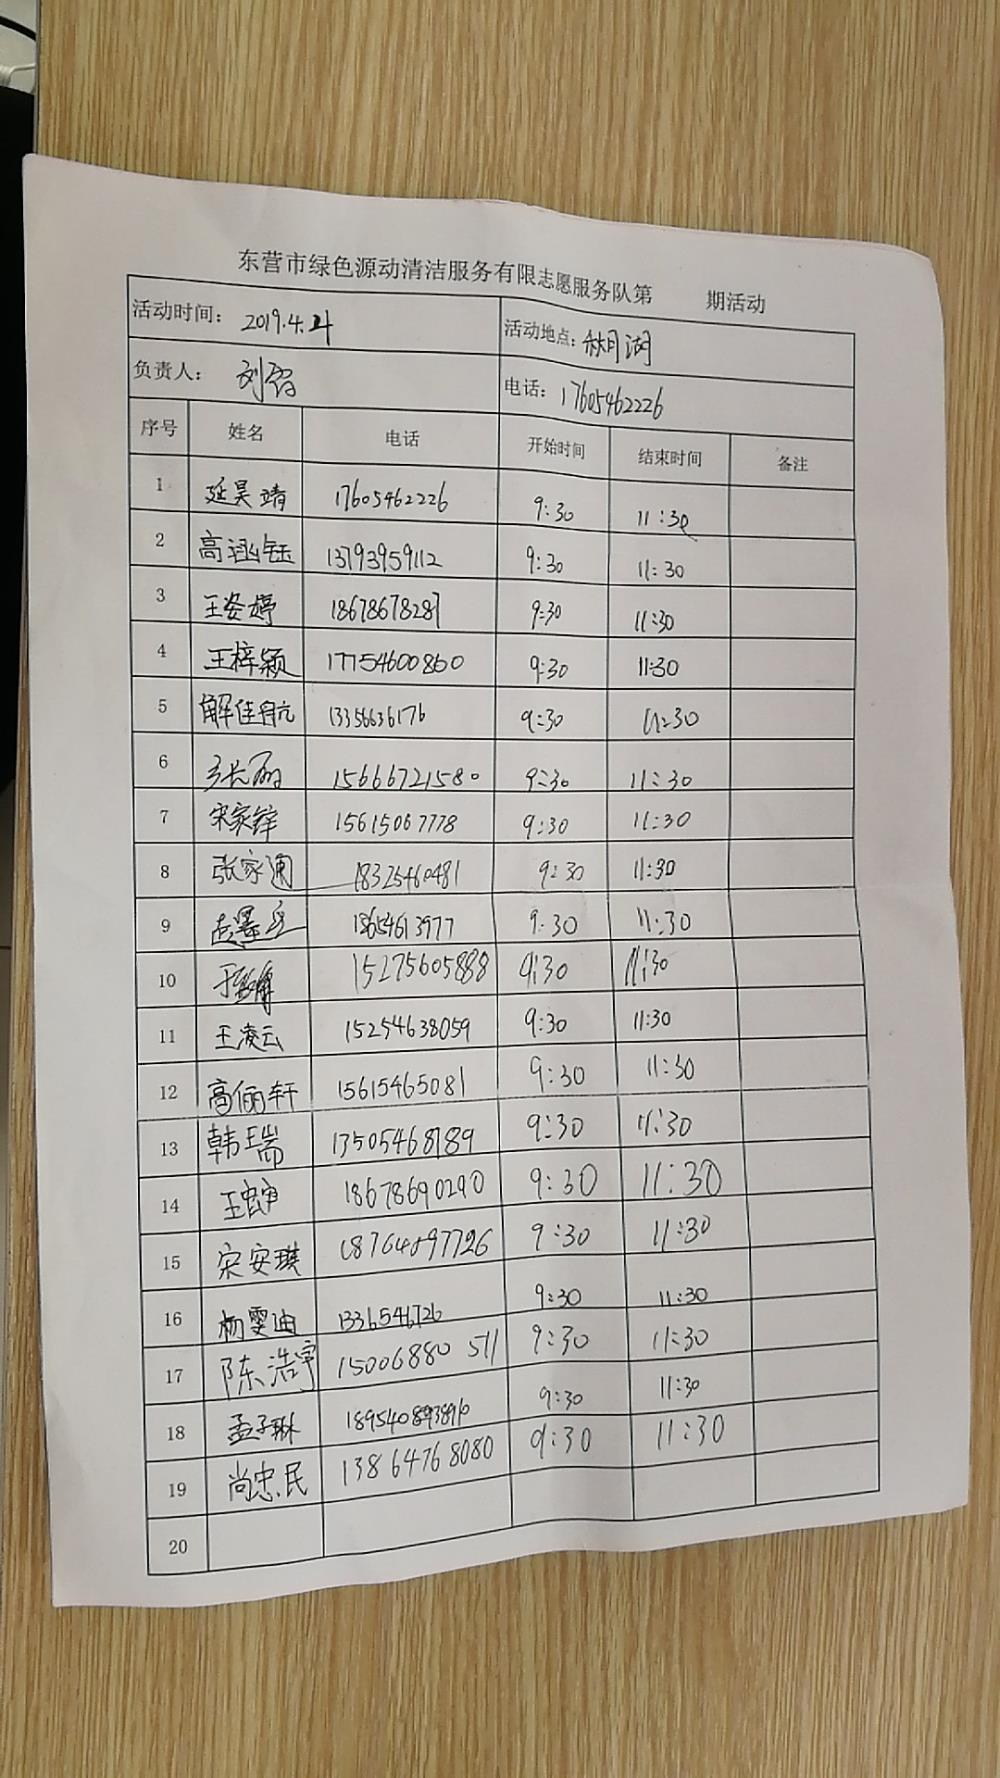 东营市绿色源动清洁服务有限志愿服务队第 期活动
活动时间: 2019.4.21 活动地点: 秋月湖
负责人: 刘 电话: 17605462226
序号 姓名 电话 开始时间 结束时间 备注
1 延昊靖 17605462226 9:30 11:30
2 高涵钰 13793959112 9:30 11:30
3 王姿婷 18678678287 9:30 11:30
4 王梓颖 17754600860 9:30 11:30
5 解佳航 13356636176 9:30 11:30
6 15666721580 9:30 11:30
7 宋家锌 15615067778 9:30 11:30
8 张家通 18325460481 9:30 11:30
9 18654613977 9:30 11:30
10 15275605888 9:30 11:30
11 王凌云 15254638059 9:30 11:30
12 高俪轩 15615465081 9:30 11:30
13 韩瑞 13505468789 9:30 11:30
14 18678690290 9:30 11:30
15 宋安琪 18764897726 9:30 11:30
16 杨雯迪 1336546726 9:30 11:30
17 陈浩宇 15006880511 9:30 11:30
18 孟子琳 9:30 11:30
19 尚忠民 13864768080 9:30 11:30
20